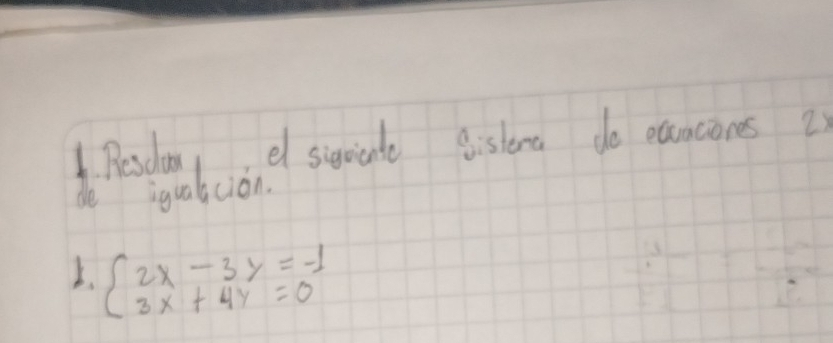 1. Resolver el siguiente sistema de ecuaciones 2x
de igualación.
1. { 2x - 3y = -1
3x + 4y = 0